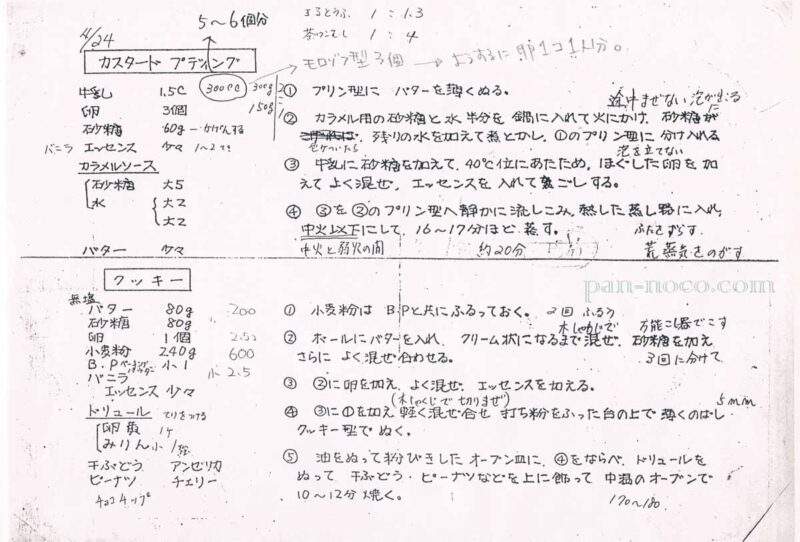 5～6個分
まるとうふ 1:1.3
茶わんむし 1:4
4/24
カスタード プディング
モロゾフ型3個 → ようするに 卵1コ1人分。
牛乳 1.5C 300cc 300g
卵 3個 150g
砂糖 60g
バニラ エッセンス 少々 1～2
カラメルソース
砂糖 大5
水 大2
大2
バター 少々
① プリン型に バターを薄くぬる。
途中まぜない
② カラメル用の砂糖と水半分を鍋に入れて火にかけ、砂糖が
色がついたら 残りの水を加えて煮とかし、①のプリン型に分け入れる
泡を立てない
③ 牛乳に砂糖を加えて、40℃位にあたため、ほぐした卵を加
えてよく混ぜ、エッセンスを入れて裏ごしする。
④ ③を②のプリン型へ静かに流しこみ、熱した蒸し器に入れ
中火以下にして、16～17分ほど蒸す。 ふたをずらす
中火と弱火の間 約20分 蒸気をのがす
クッキー
pan-noco.com
無塩
バター 80g 200
砂糖 80g 〃
卵 1個 2.5コ
小麦粉 240g 600
B.P ベーキングパウダー 小1 小2.5
バニラ
エッセンス 少々
ドリュール てりをつける
卵黄 1ケ
みりん 小1
干ぶどう アンゼリカ
ピーナツ チェリー
チョコチップ
① 小麦粉は B.Pと共にふるっておく。 2回ふるう
木しゃもじで 万能こし器でこす
② ボールにバターを入れ、クリーム状になるまで混ぜ、砂糖を加え
さらに よく混ぜ合わせる。 3回に分けて
③ ②に卵を加え、よく混ぜ、エッセンスを加える。
(木しゃもじで切りまぜ) 5mm
④ ③に①を加え軽く混ぜ合せ 打ち粉をふった台の上で薄くのばし
クッキー型でぬく。
⑤ 油をぬって粉びきしたオーブン皿に、④をならべ、ドリュールを
ぬって 干ぶどう・ピーナツなどを上に飾って 中温のオーブンで
10～12分焼く。 170～180